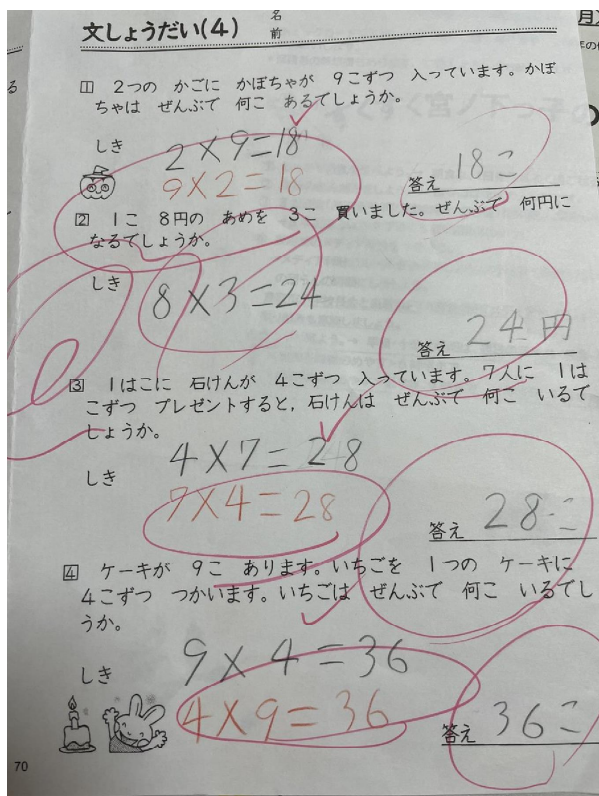 文しょうだい(4)
名前
月
1 2つの かごに かぼちゃが 9こずつ 入っています。かぼ
ちゃは ぜんぶで 何こ あるでしょうか。
しき
2×9=18
9×2=18
答え 18こ
2 1こ 8円の あめを 3こ 買いました。ぜんぶで 何円に
なるでしょうか。
しき
8×3=24
答え 24円
3 1はこに 石けんが 4こずつ 入っています。7人に 1は
こずつ プレゼントすると,石けんは ぜんぶで 何こ いるで
しょうか。
しき
4×7=28
7×4=28
答え 28こ
4 ケーキが 9こ あります。いちごを 1つの ケーキに
4こずつ つかいます。いちごは ぜんぶで 何こ いるでし
ょうか。
しき
9×4=36
4×9=36
答え 36こ
70